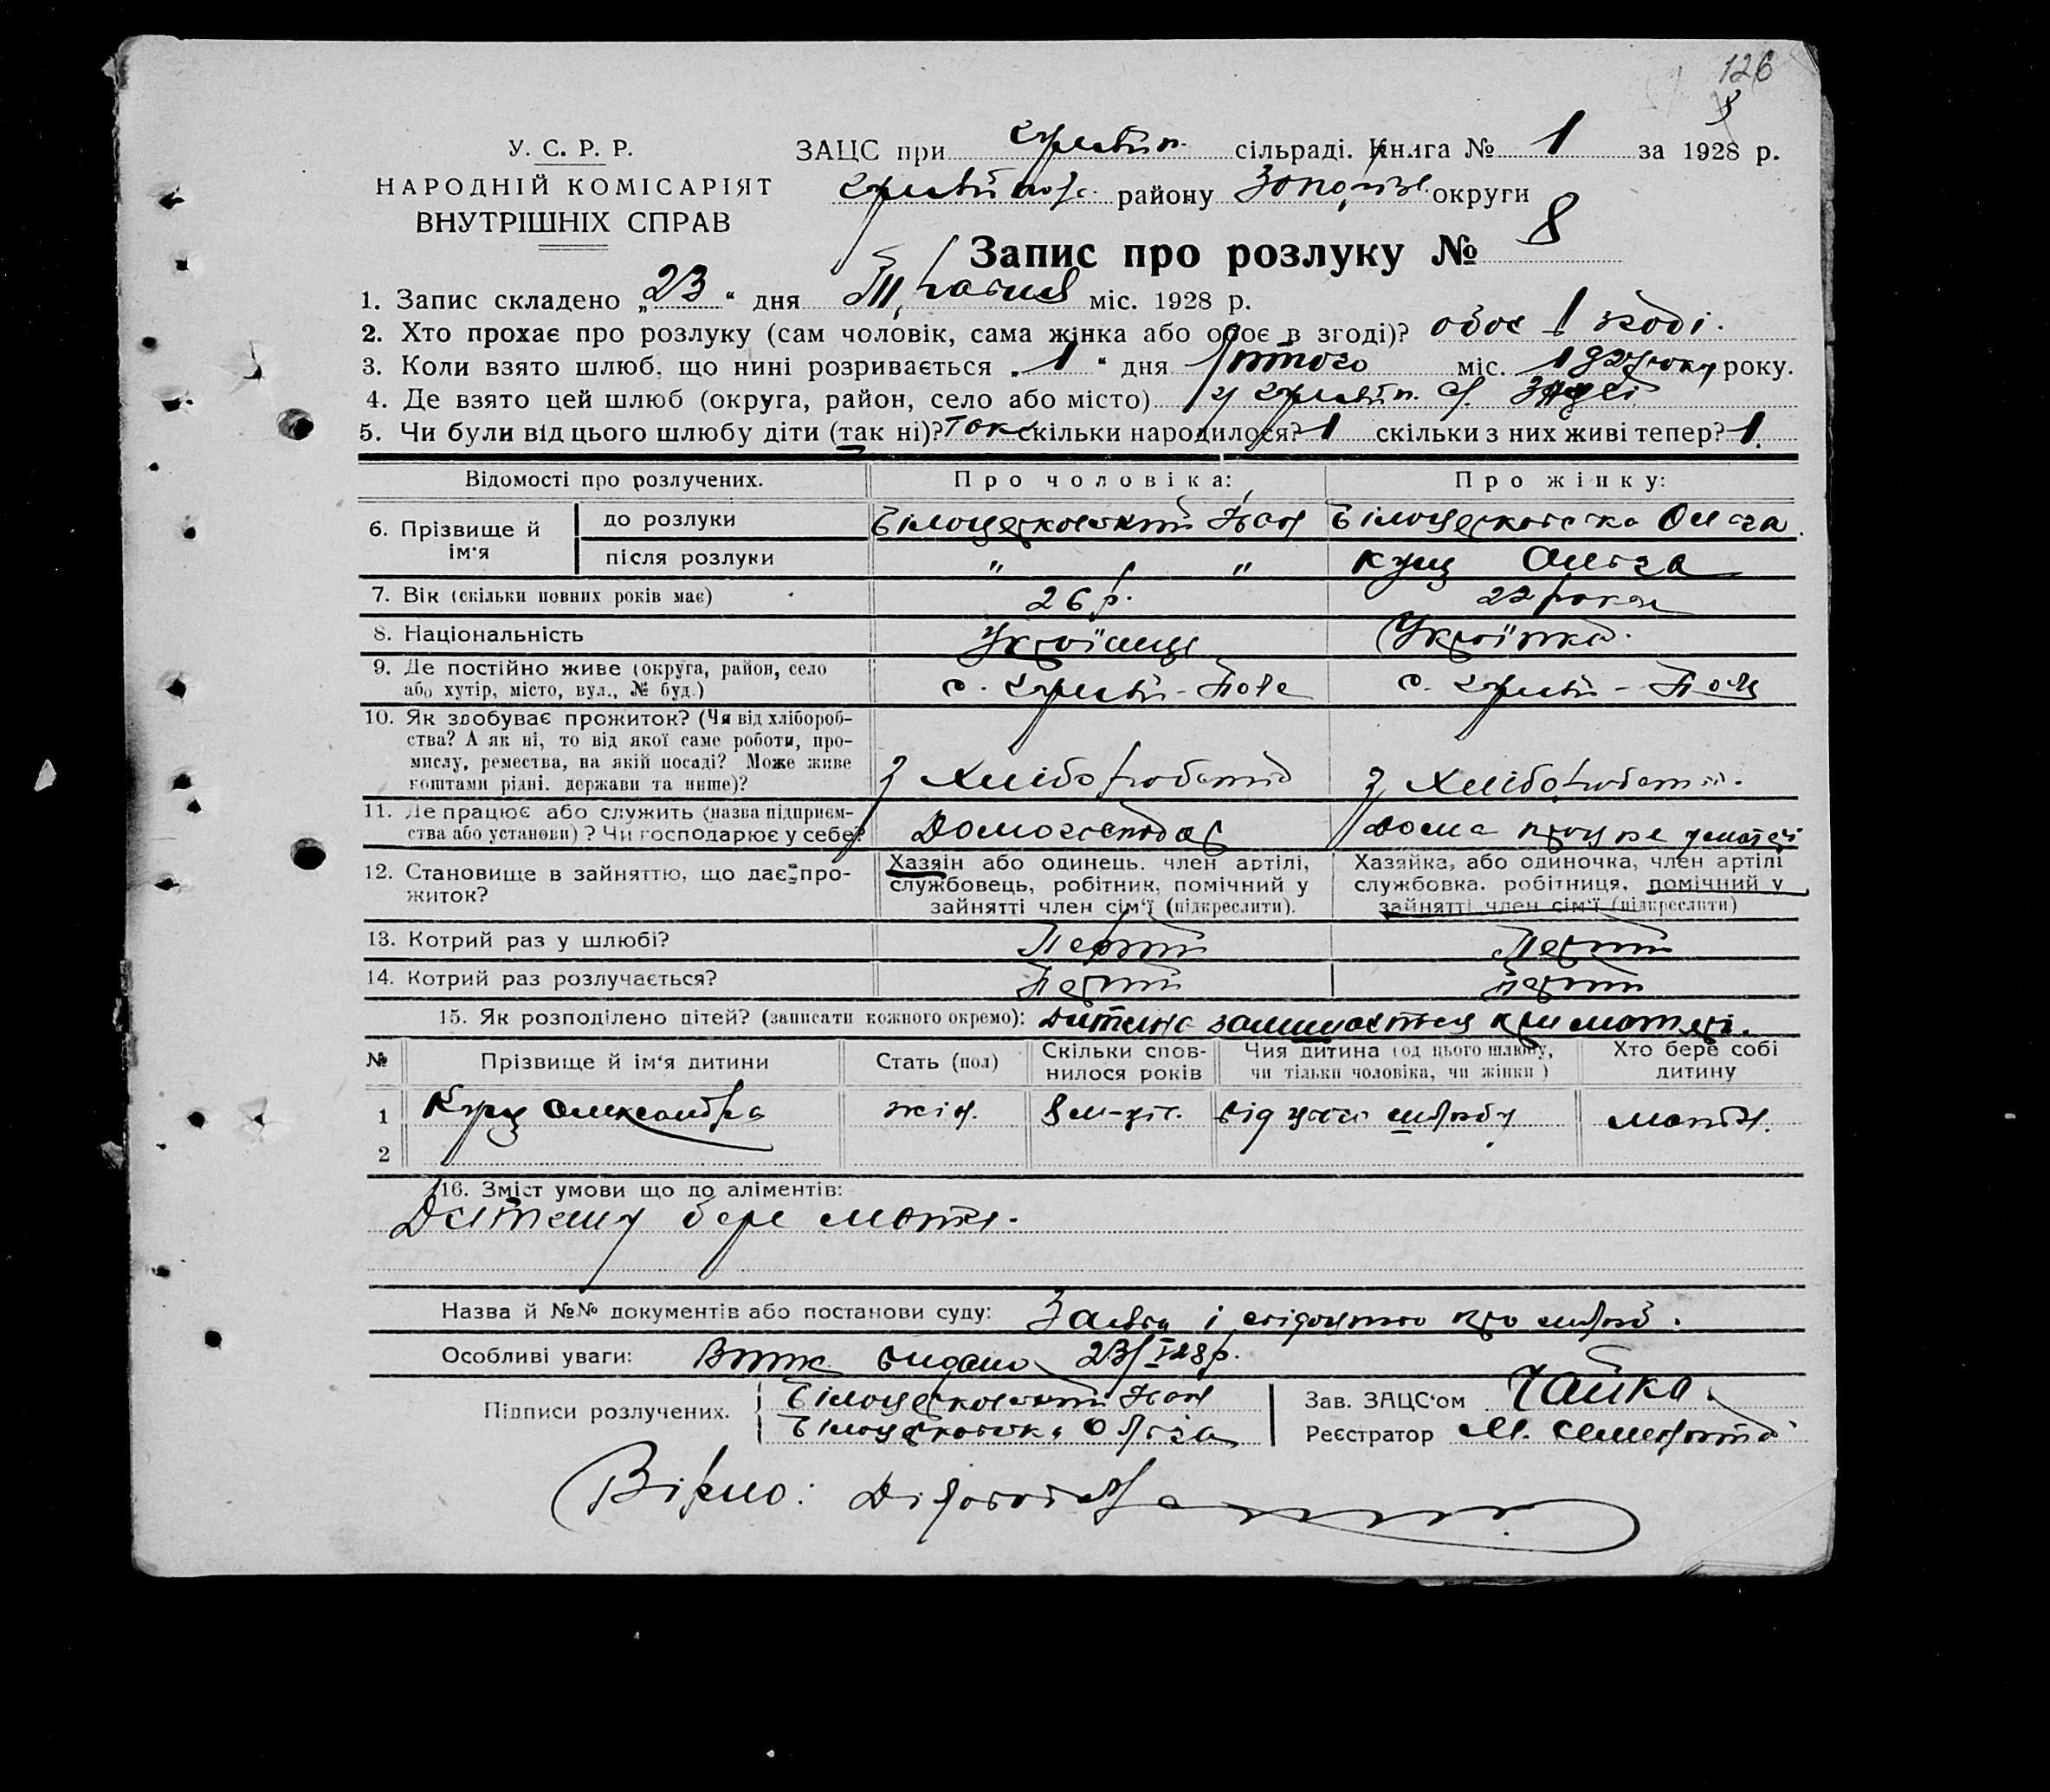 126
8
У. С. Р. Р.
НАРОДНІЙ КОМІСАРІЯТ
ВНУТРІШНІХ СПРАВ
ЗАЦС при сільраді. Книга № 1 за 1928 р.
району округи
Запис про розлуку № 8
1. Запис складено „23“ дня травня міс. 1928 р.
2. Хто прохає про розлуку (сам чоловік, сама жінка або обоє в згоді)? обоє в згоді.
3. Коли взято шлюб, що нині розривається „1“ дня лютого міс. 1927 року року.
4. Де взято цей шлюб (округа, район, село або місто) у
5. Чи були від цього шлюбу діти (так ні)? так скільки народилося? 1 скільки з них живі тепер? 1.
Відомості про розлучених. Про чоловіка: Про жінку:
6. Прізвище й ім‘я до розлуки Білоцерковський Іван Білоцерковська Ольга.
після розлуки „ „ Кущ Ольга
7. Вік (скільки повних років має) 26 р. 22 роки
8. Національність Українець Українка.
9. Де постійно живе (округа, район, село
або хутір, місто, вул., № буд.) с. с.
10. Як здобуває прожиток? (Чи від хлібороб-
ства? А як ні, то від якої саме роботи, про-
мислу, ремества, на якій посаді? Може живе
коштами рідні, держави та инше)? З хліборобства З хліборобства.
11. Де працює або служить (назва підприєм-
ства або установи)? Чи господарює у себе? Домогосподар Дома працює у матері
12. Становище в зайняттю, що дає про-
житок? Хазяін або одинець, член артілі, службовець, робітник, помічний у зайнятті член сім‘ї (підкреслити). Хазяйка, або одиночка, член артілі службовка, робітниця, помічний у зайнятті член сім‘ї (підкреслити)
13. Котрий раз у шлюбі? Перший Перший
14. Котрий раз розлучається? Перший Перший
15. Як розподілено дітей? (записати кожного окремо): Дитина залишається при матері.
№ Прізвище й ім‘я дитини Стать (пол) Скільки спов-нилося років Чия дитина (од цього шлюбу, чи тільки чоловіка, чи жінки) Хто бере собі дитину
1 Кущ Олександра жін. 8 м-ців. від цього шлюбу мати.
2
16. Зміст умови що до аліментів:
Дитину бере мати.
Назва й №№ документів або постанови суду: Заява і свідоцтво про шлюб.
Особливі уваги: Витяг видано 23/V 28 р.
Підписи розлучених. Білоцерковський Іван
Білоцерковська Ольга
Зав. ЗАЦС‘ом Чайка
Реєстратор М.
Вірно: